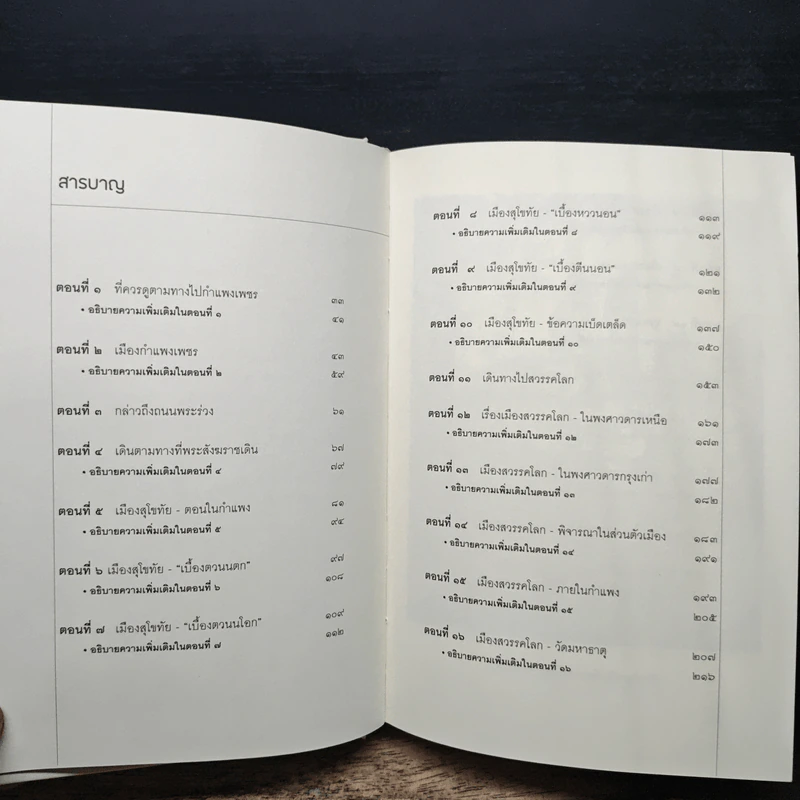 สารบาญ
ตอนที่ ๑ ที่ควรดูตามทางไปกำแพงเพชร ๓๓
• อธิบายความเพิ่มเติมในตอนที่ ๑ ๔๑
ตอนที่ ๒ เมืองกำแพงเพชร ๔๓
• อธิบายความเพิ่มเติมในตอนที่ ๒ ๕๙
ตอนที่ ๓ กล่าวถึงถนนพระร่วง ๖๑
ตอนที่ ๔ เดินตามทางที่พระสังฆราชเดิน ๖๗
• อธิบายความเพิ่มเติมในตอนที่ ๔ ๗๙
ตอนที่ ๕ เมืองสุโขทัย - ตอนในกำแพง ๘๑
• อธิบายความเพิ่มเติมในตอนที่ ๕ ๙๔
ตอนที่ ๖ เมืองสุโขทัย - “เบื้องตวนนตก” ๙๗
• อธิบายความเพิ่มเติมในตอนที่ ๖ ๑๐๘
ตอนที่ ๗ เมืองสุโขทัย - “เบื้องตวนนโอก” ๑๐๙
• อธิบายความเพิ่มเติมในตอนที่ ๗ ๑๑๒
ตอนที่ ๘ เมืองสุโขทัย - “เบื้องหววนอน” ๑๑๓
• อธิบายความเพิ่มเติมในตอนที่ ๘ ๑๑๙
ตอนที่ ๙ เมืองสุโขทัย - “เบื้องตีนนอน” ๑๒๑
• อธิบายความเพิ่มเติมในตอนที่ ๙ ๑๓๒
ตอนที่ ๑๐ เมืองสุโขทัย - ข้อความเบ็ดเตล็ด ๑๓๗
• อธิบายความเพิ่มเติมในตอนที่ ๑๐ ๑๕๐
ตอนที่ ๑๑ เดินทางไปสวรรคโลก ๑๕๓
ตอนที่ ๑๒ เรื่องเมืองสวรรคโลก - ในพงศาวดารเหนือ ๑๖๑
• อธิบายความเพิ่มเติมในตอนที่ ๑๒ ๑๗๓
ตอนที่ ๑๓ เมืองสวรรคโลก - ในพงศาวดารกรุงเก่า ๑๗๗
• อธิบายความเพิ่มเติมในตอนที่ ๑๓ ๑๘๒
ตอนที่ ๑๔ เมืองสวรรคโลก - พิจารณาในส่วนตัวเมือง ๑๘๓
• อธิบายความเพิ่มเติมในตอนที่ ๑๔ ๑๙๑
ตอนที่ ๑๕ เมืองสวรรคโลก - ภายในกำแพง ๑๙๓
• อธิบายความเพิ่มเติมในตอนที่ ๑๕ ๒๐๕
ตอนที่ ๑๖ เมืองสวรรคโลก - วัดมหาธาตุ ๒๐๗
• อธิบายความเพิ่มเติมในตอนที่ ๑๖ ๒๑๖